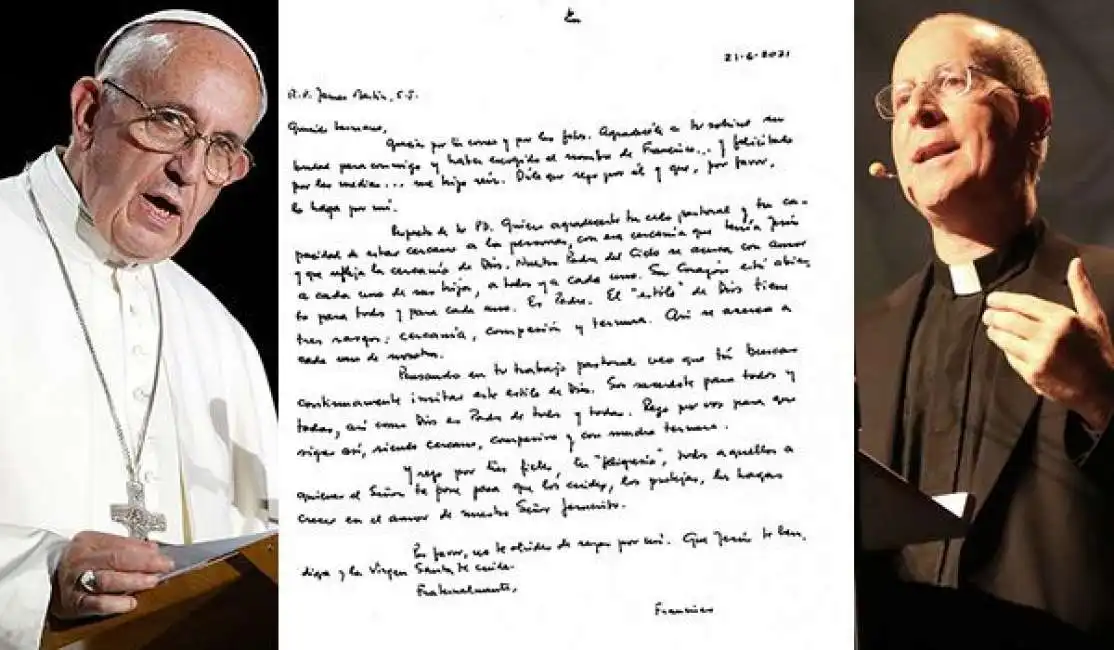 21-6-2021
R.P. James Martin, S.J.
Querido hermano,
Gracias por tu correo y por las fotos. Agradecele a tu sobrino su
bondad para conmigo y haber escogido el nombre de Francisco... y felicitalo
por las medias... me hizo reir. Dile que rezo por él y que, por favor,
lo haga por mí.
Respecto de tu PD. Quiero agradecerte tu celo pastoral y tu ca-
pacidad de estar cercano a las personas, con esa cercanía que tenía Jesús
y que refleja la cercanía de Dios. Nuestro Padre del Cielo se acerca con amor
a cada uno de sus hijos, a todos y a cada uno. Su Corazón está abier-
to para todos y para cada uno. Es Padre. El "estilo" de Dios tiene
tres rasgos: cercanía, compasión y ternura. Así se acerca a
cada uno de nosotros.
Pensando en tu trabajo pastoral veo que tú buscas
continuamente imitar este estilo de Dios. Sos sacerdote para todos y
todas, así como Dios es Padre de todos y todas. Rezo por vos para que
sigas así, siendo cercano, compasivo y con mucha ternura.
Y rezo por tus fieles, tu "feligresía", todos aquellos a
quienes el Señor te pone para que los cuides, los protejas, los hagas
crecer en el amor de nuestro Señor Jesucristo.
Por favor, no te olvides de rezar por mí. Que Jesús te ben-
diga y la Virgen Santa te cuide.
Fraternalmente,
Francisco